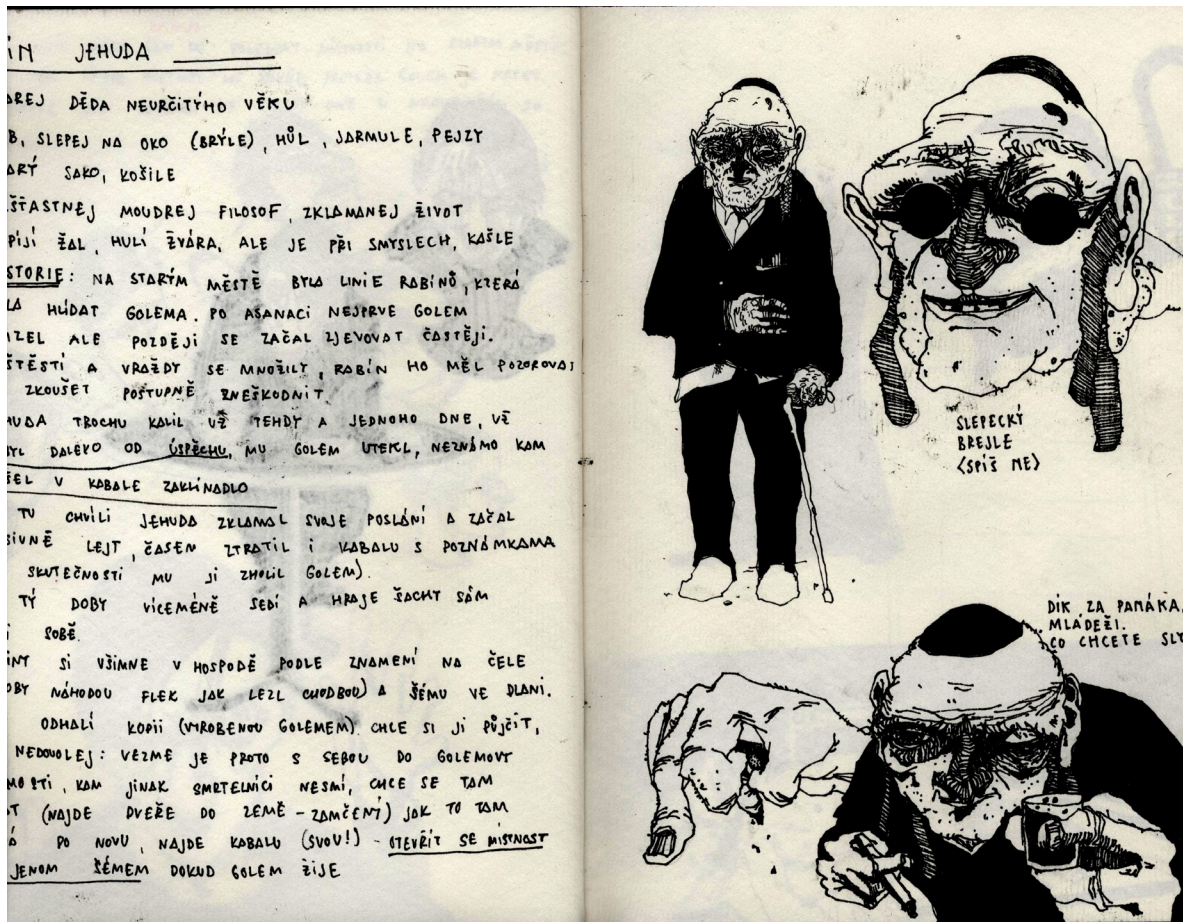 ÍN JEHUDA
DREJ DĚDA NEURČITÝHO VĚKU
B, SLEPEJ NA OKO (BRÝLE), HŮL, JARMULE, PEJZY
ARÝ SAKO, KOŠILE
ŠŤASTNEJ MOUDREJ FILOSOF, ZKLAMANEJ ŽIVOT
PÍJÍ ŽAL, HULÍ ŽVÁRA, ALE JE PŘI SMYSLECH, KAŠLE
STORIE: NA STARÝM MĚSTĚ BYLA LINIE RABÍNŮ, KTERÁ
LA HLÍDAT GOLEMA. PO ASANACI NEJPRVE GOLEM
IZEL ALE POZDĚJI SE ZAČAL ZJEVOVAT ČASTĚJI.
ŠTĚSTÍ A VRAŽDY SE MNOŽILY, RABÍN HO MĚL POZOROVAT
ZKOUŠET POSTUPNĚ ZNEŠKODNIT.
HUDA TROCHU KALIL UŽ TEHDY A JEDNOHO DNE, UŽ
BYL DALEKO OD ÚSPĚCHU, MU GOLEM UTEKL, NEZNÁMO KAM
ŠEL V KABALE ZAKLÍNADLO
TU CHVÍLI JEHUDA ZKLAMAL SVOJE POSLÁNÍ A ZAČAL
SIVNĚ LEJT, ČASEM ZTRATIL I KABALU S POZNÁMKAMA
SKUTEČNOSTI MU JI ZHOLIL GOLEM).
TÝ DOBY VÍCEMÉNĚ SEDÍ A HRAJE ŠACHY SÁM
I SOBĚ.
INY SI VŠIMNE V HOSPODĚ PODLE ZNAMENÍ NA ČELE
OBY NÁHODOU FLEK JAK LEZL CHODBOU) A ŠÉMU VE DLANI.
ODHALÍ KOPII (VYROBENOU GOLEMEM). CHCE SI JI PŮJČIT,
NEDOVOLEJ: VEZME JE PROTO S SEBOU DO GOLEMOVY
MOSTI, KAM JINAK SMRTELNÍCI NESMÍ, CHCE SE TAM
T (NAJDE DVEŘE DO ZEMĚ - ZAMČENÝ) JAK TO TAM
Á PO NOVU, NAJDE KABALU (SVOU!) - OTEVŘÍT SE MÍSTNOST
JENOM ŠÉMEM DOKUD GOLEM ŽIJE
SLEPECKÝ
BREJLE
(SPÍŠ NE)
DÍK ZA PANÁKA,
MLÁDEŽI.
CO CHCETE SLY